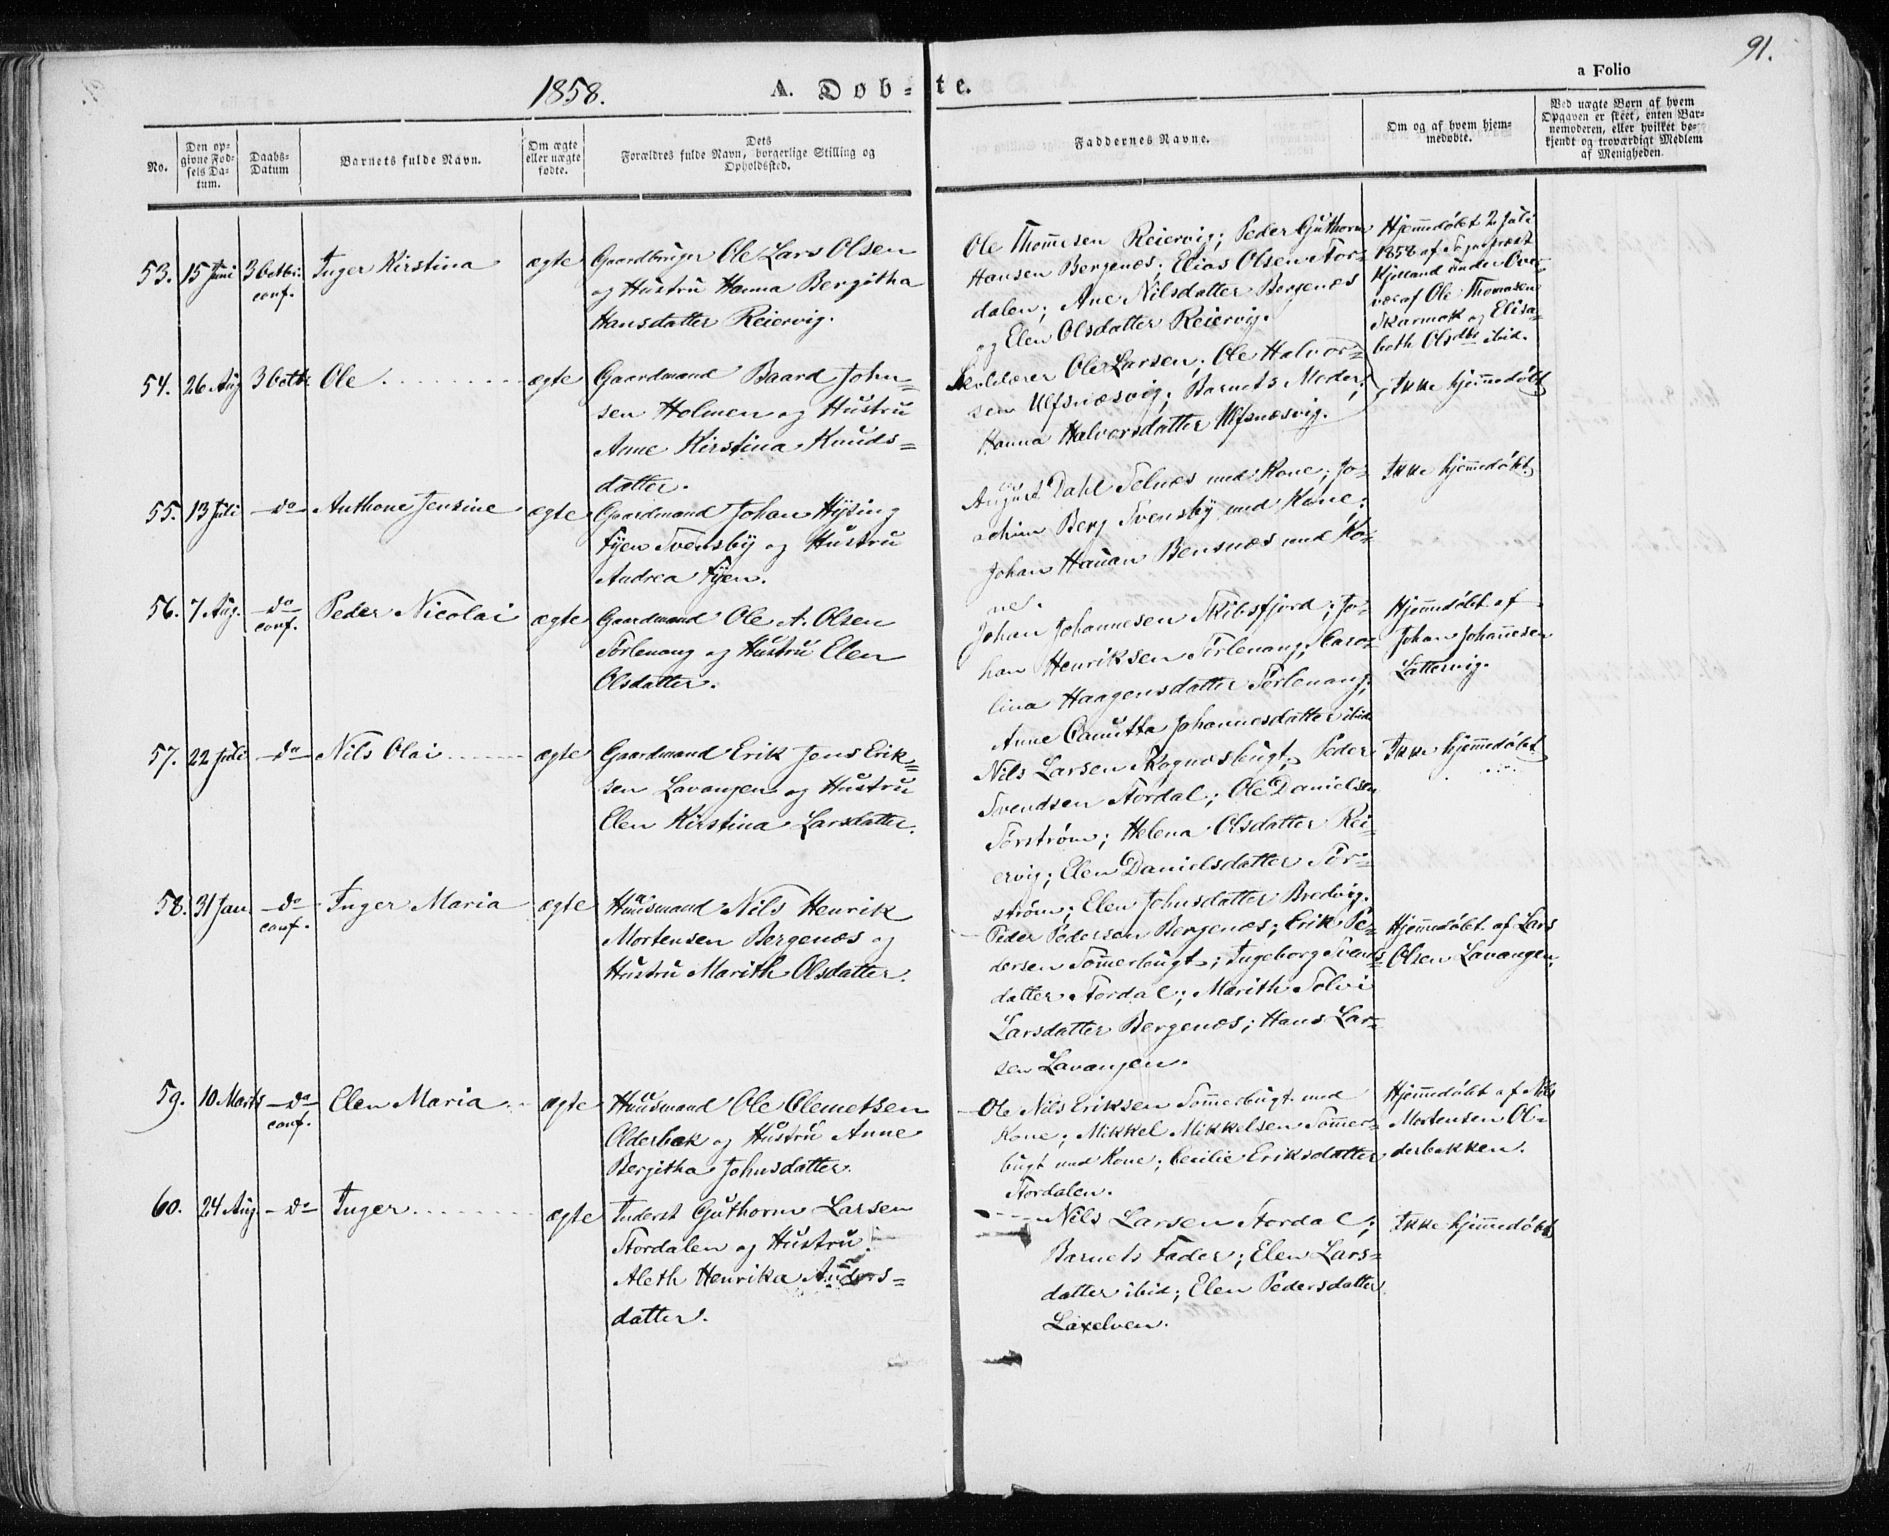 91.
1858. A. Døb- te. a Folio
No. Den opgivne Fødsels Datum. Daabs-Datum Barnets fulde Navn. Om ægte eller uægte fødte. Dets Forældres fulde Navn, borgerlige Stilling og Opholdssted. Faddernes Navne. Om og af hvem hjemmedøbte. Ved uægte Børn af hvem Opgaven er skeet, enten Barnemoderen, eller hvilket bekjendt og troværdigt Medlem af Menigheden.
53. 15 Juni 3 Octbr. conf. Inger Kirstina ægte
Gaardbruger Ole Lars Olsen
og Hustru Hanna Bergitha
Hansdatter Reiervig.
Ole Thomesen Reiervig; Peder Guthorm
Hansen Bergenes; Elias Olsen Stor-
dalen; Ane Nilsdatter Bergenes
og Elen Olsdatter Reiervig.
Hjemmedøbt 2 Juli
1858 af Sognepræst
Kjelland under Over-
vær af Ole Thomesen
Skarmok og Elisa-
beth Olsdtr ibid.
54. 26 Aug 3 Octb Ole ægte
Gaardmand Baard John-
sen Holmen og Hustru
Anne Kirstina Knuds-
datter.
Skolelærer Ole Larsen; Ole Halvor-
sen Ulfsnæsvig; Barnets Moder;
Hanna Halvorsdatter Ulfsnæsvig.
Ikke hjemmedøbt
55. 13 Juli - do Anthone Jensine ægte
Gaardmand Johan Hysing
Fyen Svensby og Hustru
Andrea Fyen.
August Dahl Selnæs med Kone; Jo-
achim Berg Svensby med Kone;
Johan Hauan Bensnæs med Ko-
ne.
Ikke hjemmedøbt
56. 7 Aug. - do conf. Peder Nicolai ægte
Gaardmand Ole A. Olsen
Sørlenang og Hustru Elen
Olsdatter.
Johan Johannesen Skibsfjord; Jo-
han Henriksen Sørlenang; Caro-
lina Haagensdatter Sørlenang;
Anne Canutta Johannesdatter ibid
Hjemmedøbt af
Johan Johannesen
Lattervig.
57. 22 Juli - do Nils Olai ægte
Gaardmand Erik Jens Erik-
sen Lavangen og Hustru
Elen Kirstina Larsdatter.
Nils Larsen Skognæsbugt; Peder
Svendsen Stordal; Ole Danielsen
Sørstrøm; Helena Olsdatter Rei-
ervig; Elen Danielsdatter Sør-
strøm; Elen Johnsdatter Bredvig.
Ikke hjemmedøbt
58. 31 Jan. - do conf. Inger Maria ægte
Huusmand Nils Henrik
Mortensen Bergenes og
Hustru Marith Olsdatter.
Peder Pedersen Bergenes; Erik Pe-
dersen Sommerbugt; Ingeborg Svends-
datter Stordal; Marith Solvi
Larsdatter Bergenes; Hans Lar-
sen Lavangen.
Hjemmedøbt af Lars
Olsen Lavangen.
59. 10 Marts - do conf. Elen Maria ægte
Huusmand Ole Clemetsen
Olderbæk og Hustru Anne
Bergitha Johnsdatter
Ole Nils Eriksen Sommerbugt med
Kone; Mikkel Mikkelsen Sommer-
bugt med Kone; Cecilie Eriksdatter
Stordalen.
Hjemmedøbt af Nils
Mortensen Ol-
derbakken.
60. 24 Aug. - do Inger ægte
Inderst Guthorm Larsen
Stordalen og Hustru
Aleth Henrika Anders-
datter.
Nils Larsen Stordal;
Barnets Fader; Elen Lars-
datter ibid; Elen Pedersdatter
Laxelven.
Ikke hjemmedøbt